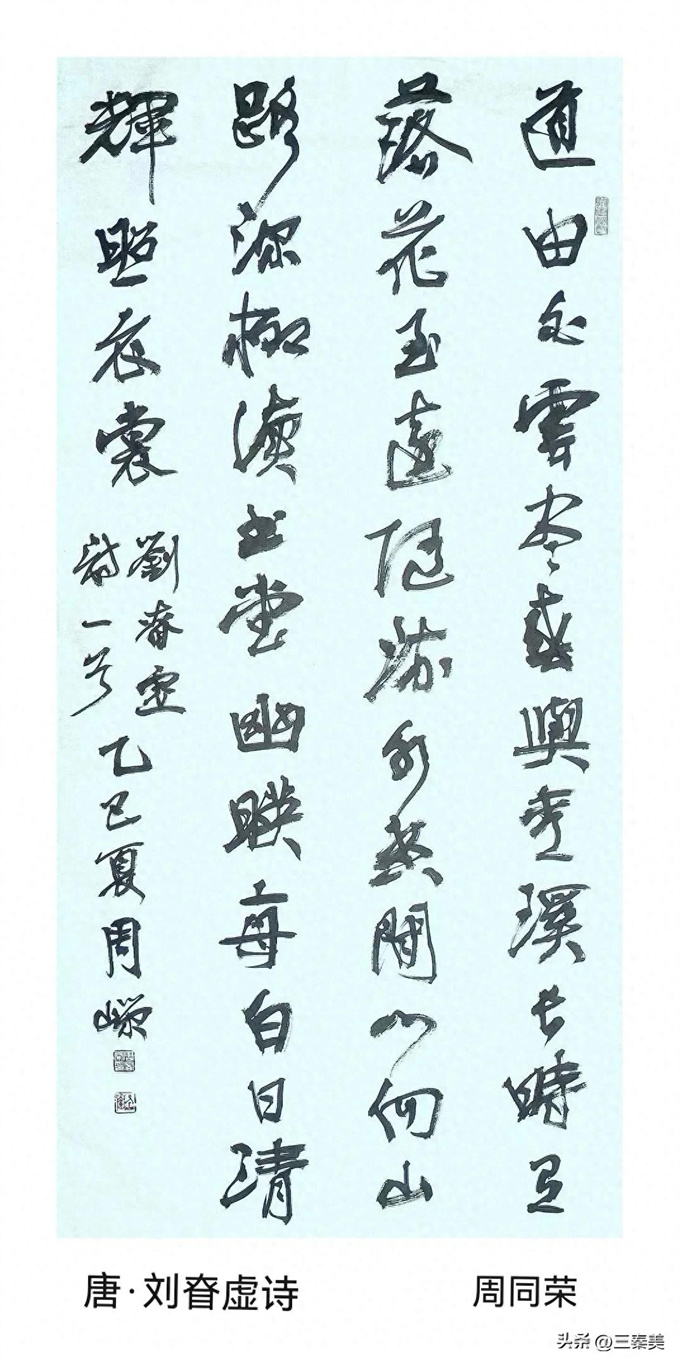 道由白雲尽春與青溪長時有
落花至遠隨流水香閑门向山
路深柳讀書堂幽映每白日清
輝照衣裳
劉昚虛
詩一首
乙巳夏周嶸
唐·刘昚虚诗
周同荣
头条@三秦美